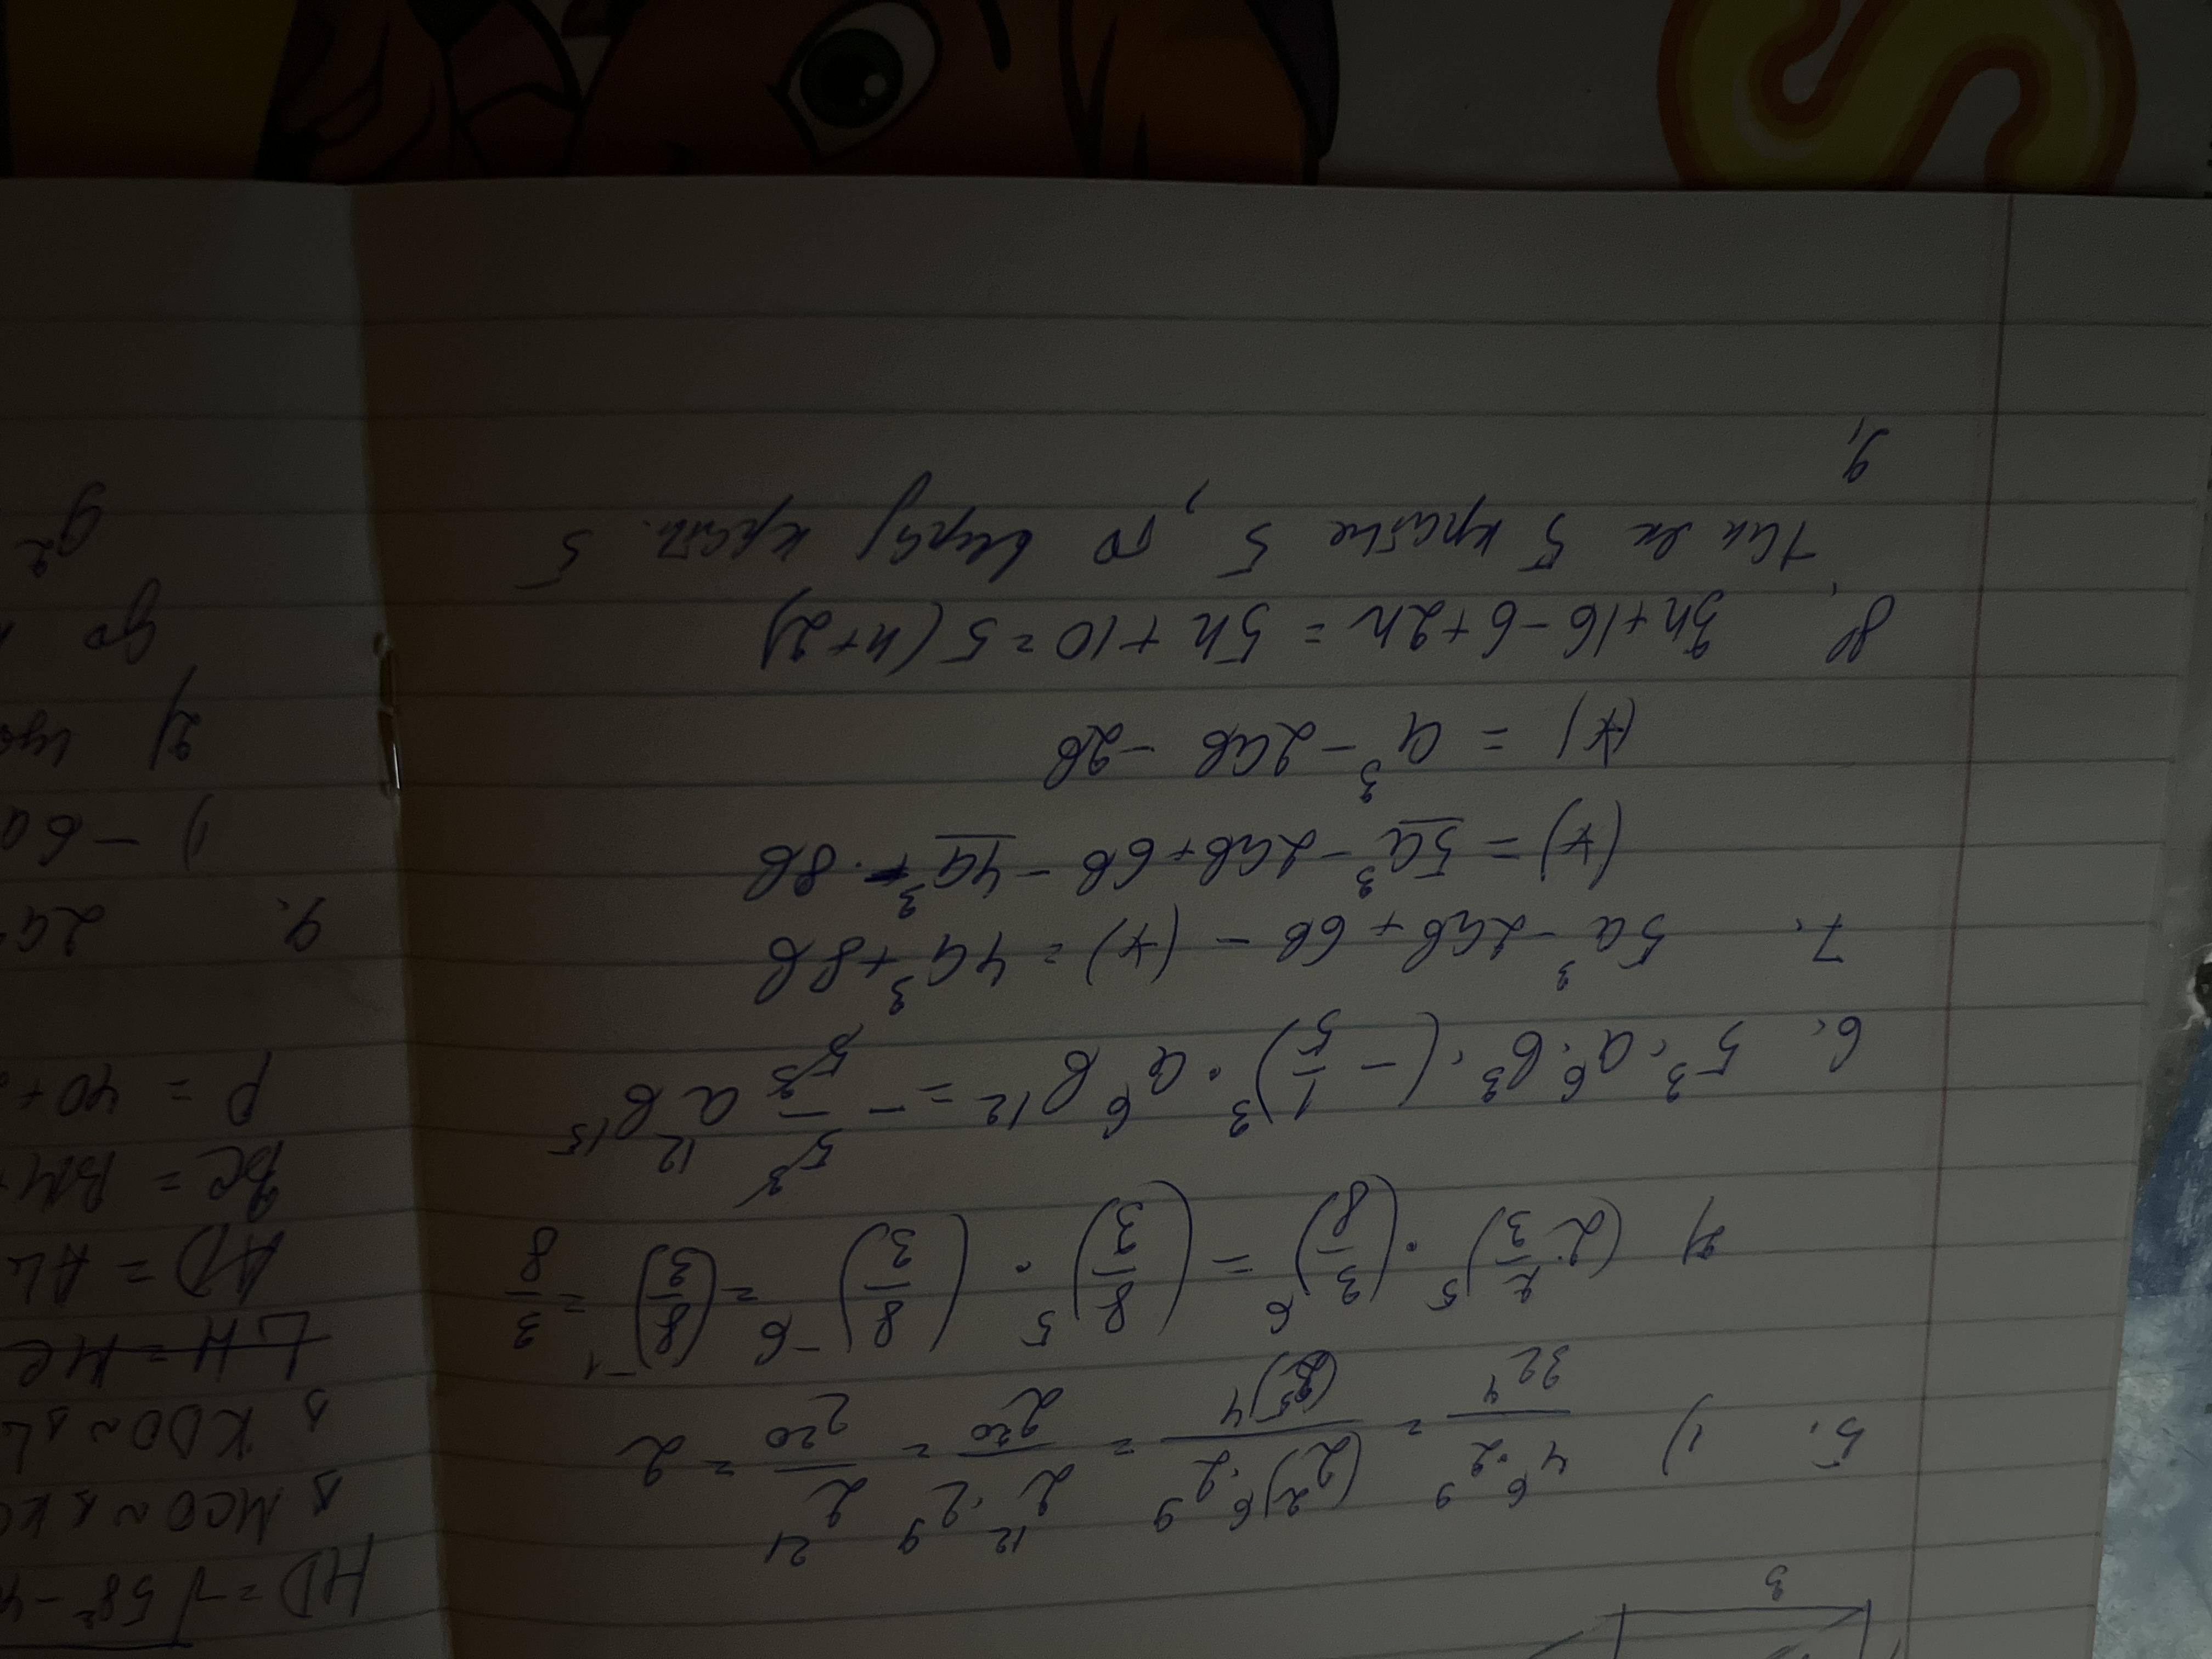 3
5. 1) 4⁶·2⁹/32⁴ = (2²)⁶·2⁹/(2⁵)⁴ = 2¹²·2⁹/2²⁰ = 2²¹/2²⁰ = 2
2) (2 2/3)⁵ · (3/8)⁶ = (8/3)⁵ · (8/3)⁻⁶ = (8/3)⁻¹ = 3/8
6. 5³·a⁶·b³·(-1/5)³·a⁶b¹² = -5³/5³ a¹²b¹⁵
7. 5a³-2ab+6b-(*)=4a³+8b
(*)=5a³-2ab+6b-4a³-8b
(*)=a³-2ab-2b
8. 3n+16-6+2n=5n+10=5(n+2)
5 кратне 5, то кратн. 5
9.
HD=√58²-4
△MCO~△KC
△KDO~△L
LH=HC
AD=AL
BC=BM+
P=40+
9. 2a
1) -6a
2)
до
9²